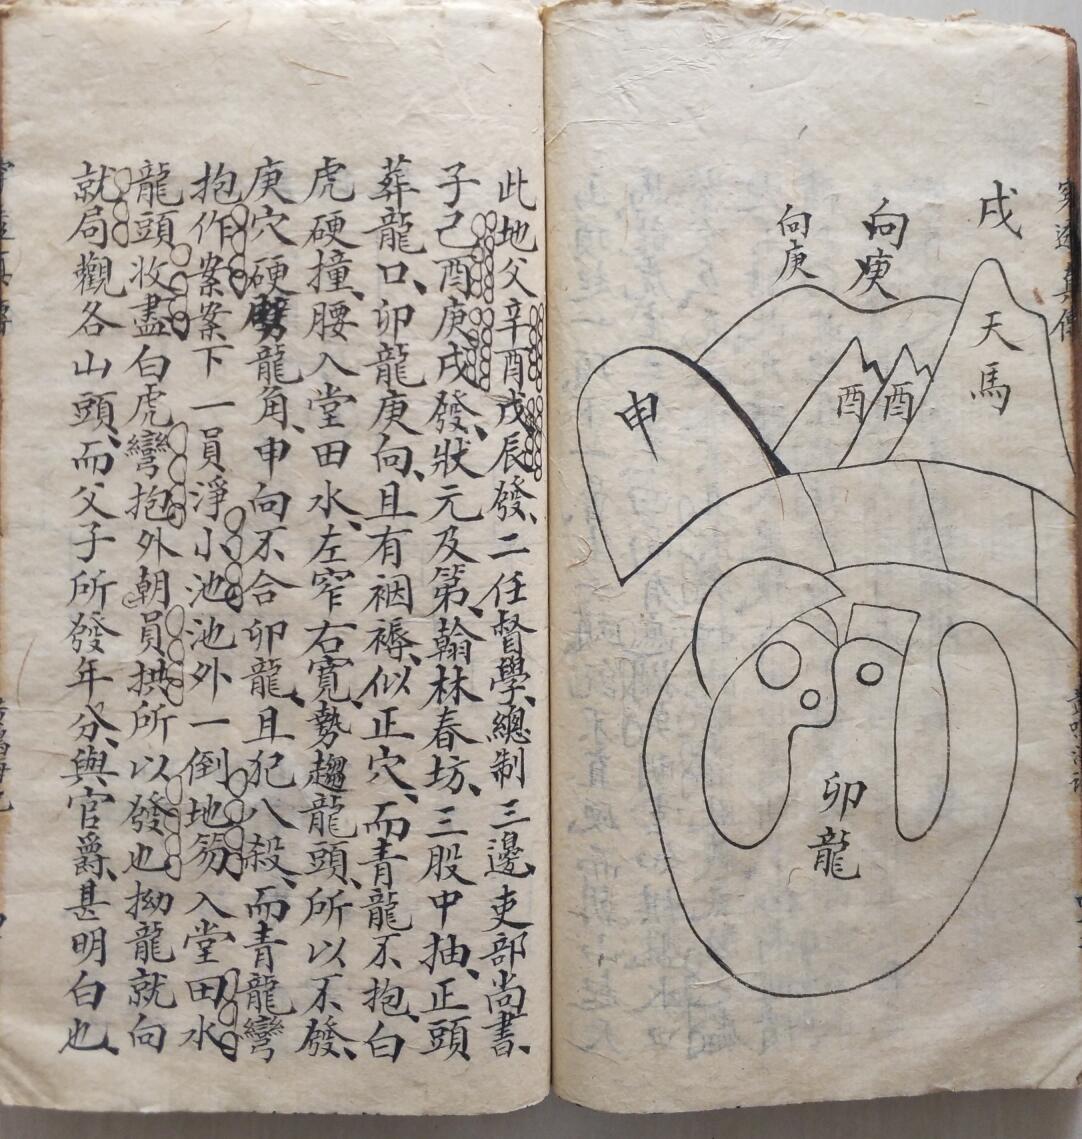 戌
向庚
向庚
天馬
酉
酉
申
卯龍
此地父辛酉戊辰發、二任督學、總制三邊、吏部尚書、
子己酉庚戌發、狀元及第、翰林春坊、三股中抽、正頭
葬龍口、卯龍庚向、且有裀褥、似正穴、而青龍不抱、白
虎硬撞、腰入堂田水、左窄右寬、勢趨龍頭、所以不發、
庚穴硬劈龍角、申向不合卯龍、且犯八殺、而青龍彎
抱作案案下一員淨小池池外一倒地笏入堂田水
龍頭收盡白虎彎抱外朝員拱所以發也拗龍就向
就局觀各山頭、而父子所發年分、與官爵、甚明白也、